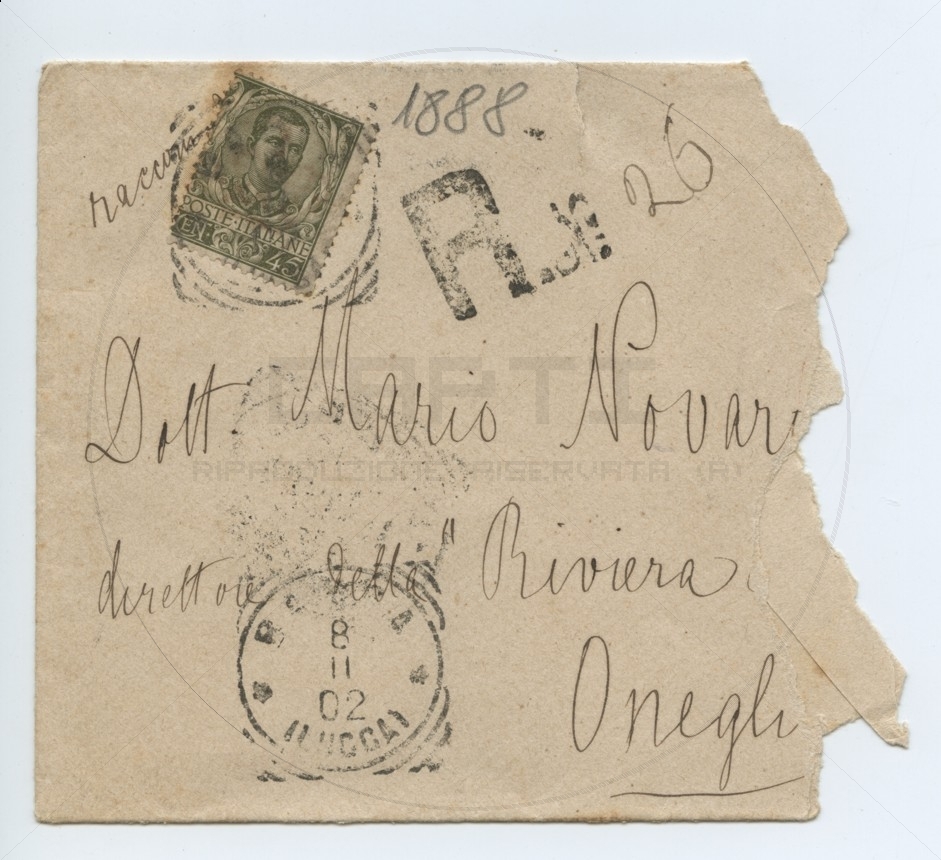 1888
26
R. Nr.
POSTE·ITALIANE
CENT. 45
Dott. Mario Novar
direttore della "Riviera
Onegli
8
11
02
(LUCCA)
RIPRODUZIONE RISERVATA (R)